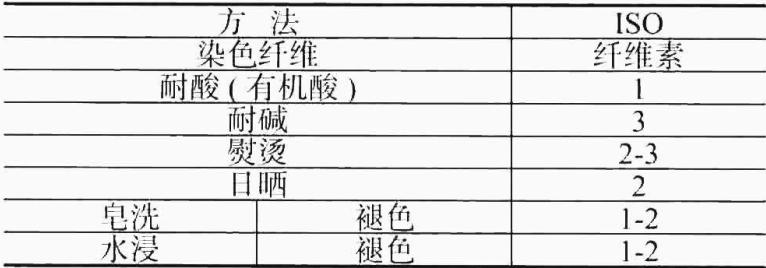 方 法 ISO
染色纤维 纤维素
耐酸(有机酸) 1
耐碱 3
熨烫 2-3
日晒 2
皂洗 褪色 1-2
水浸 褪色 1-2